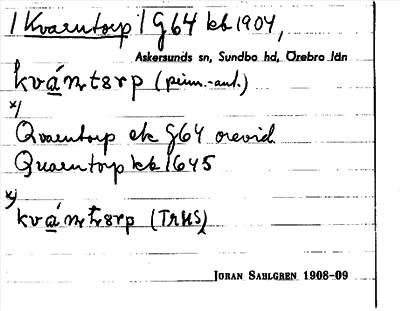 / Kvarntorp / G64 kb 1904,
Askersunds sn, Sundbo hd, Örebro län
kvá̱rntɔrp (prim.-ant.)
x)
Qvarntorp ek G64 orevid.
Quarntorp kb 1645
x)
kvá̱rntɔrp (TRHS)
JÖRAN SAHLGREN 1908-09